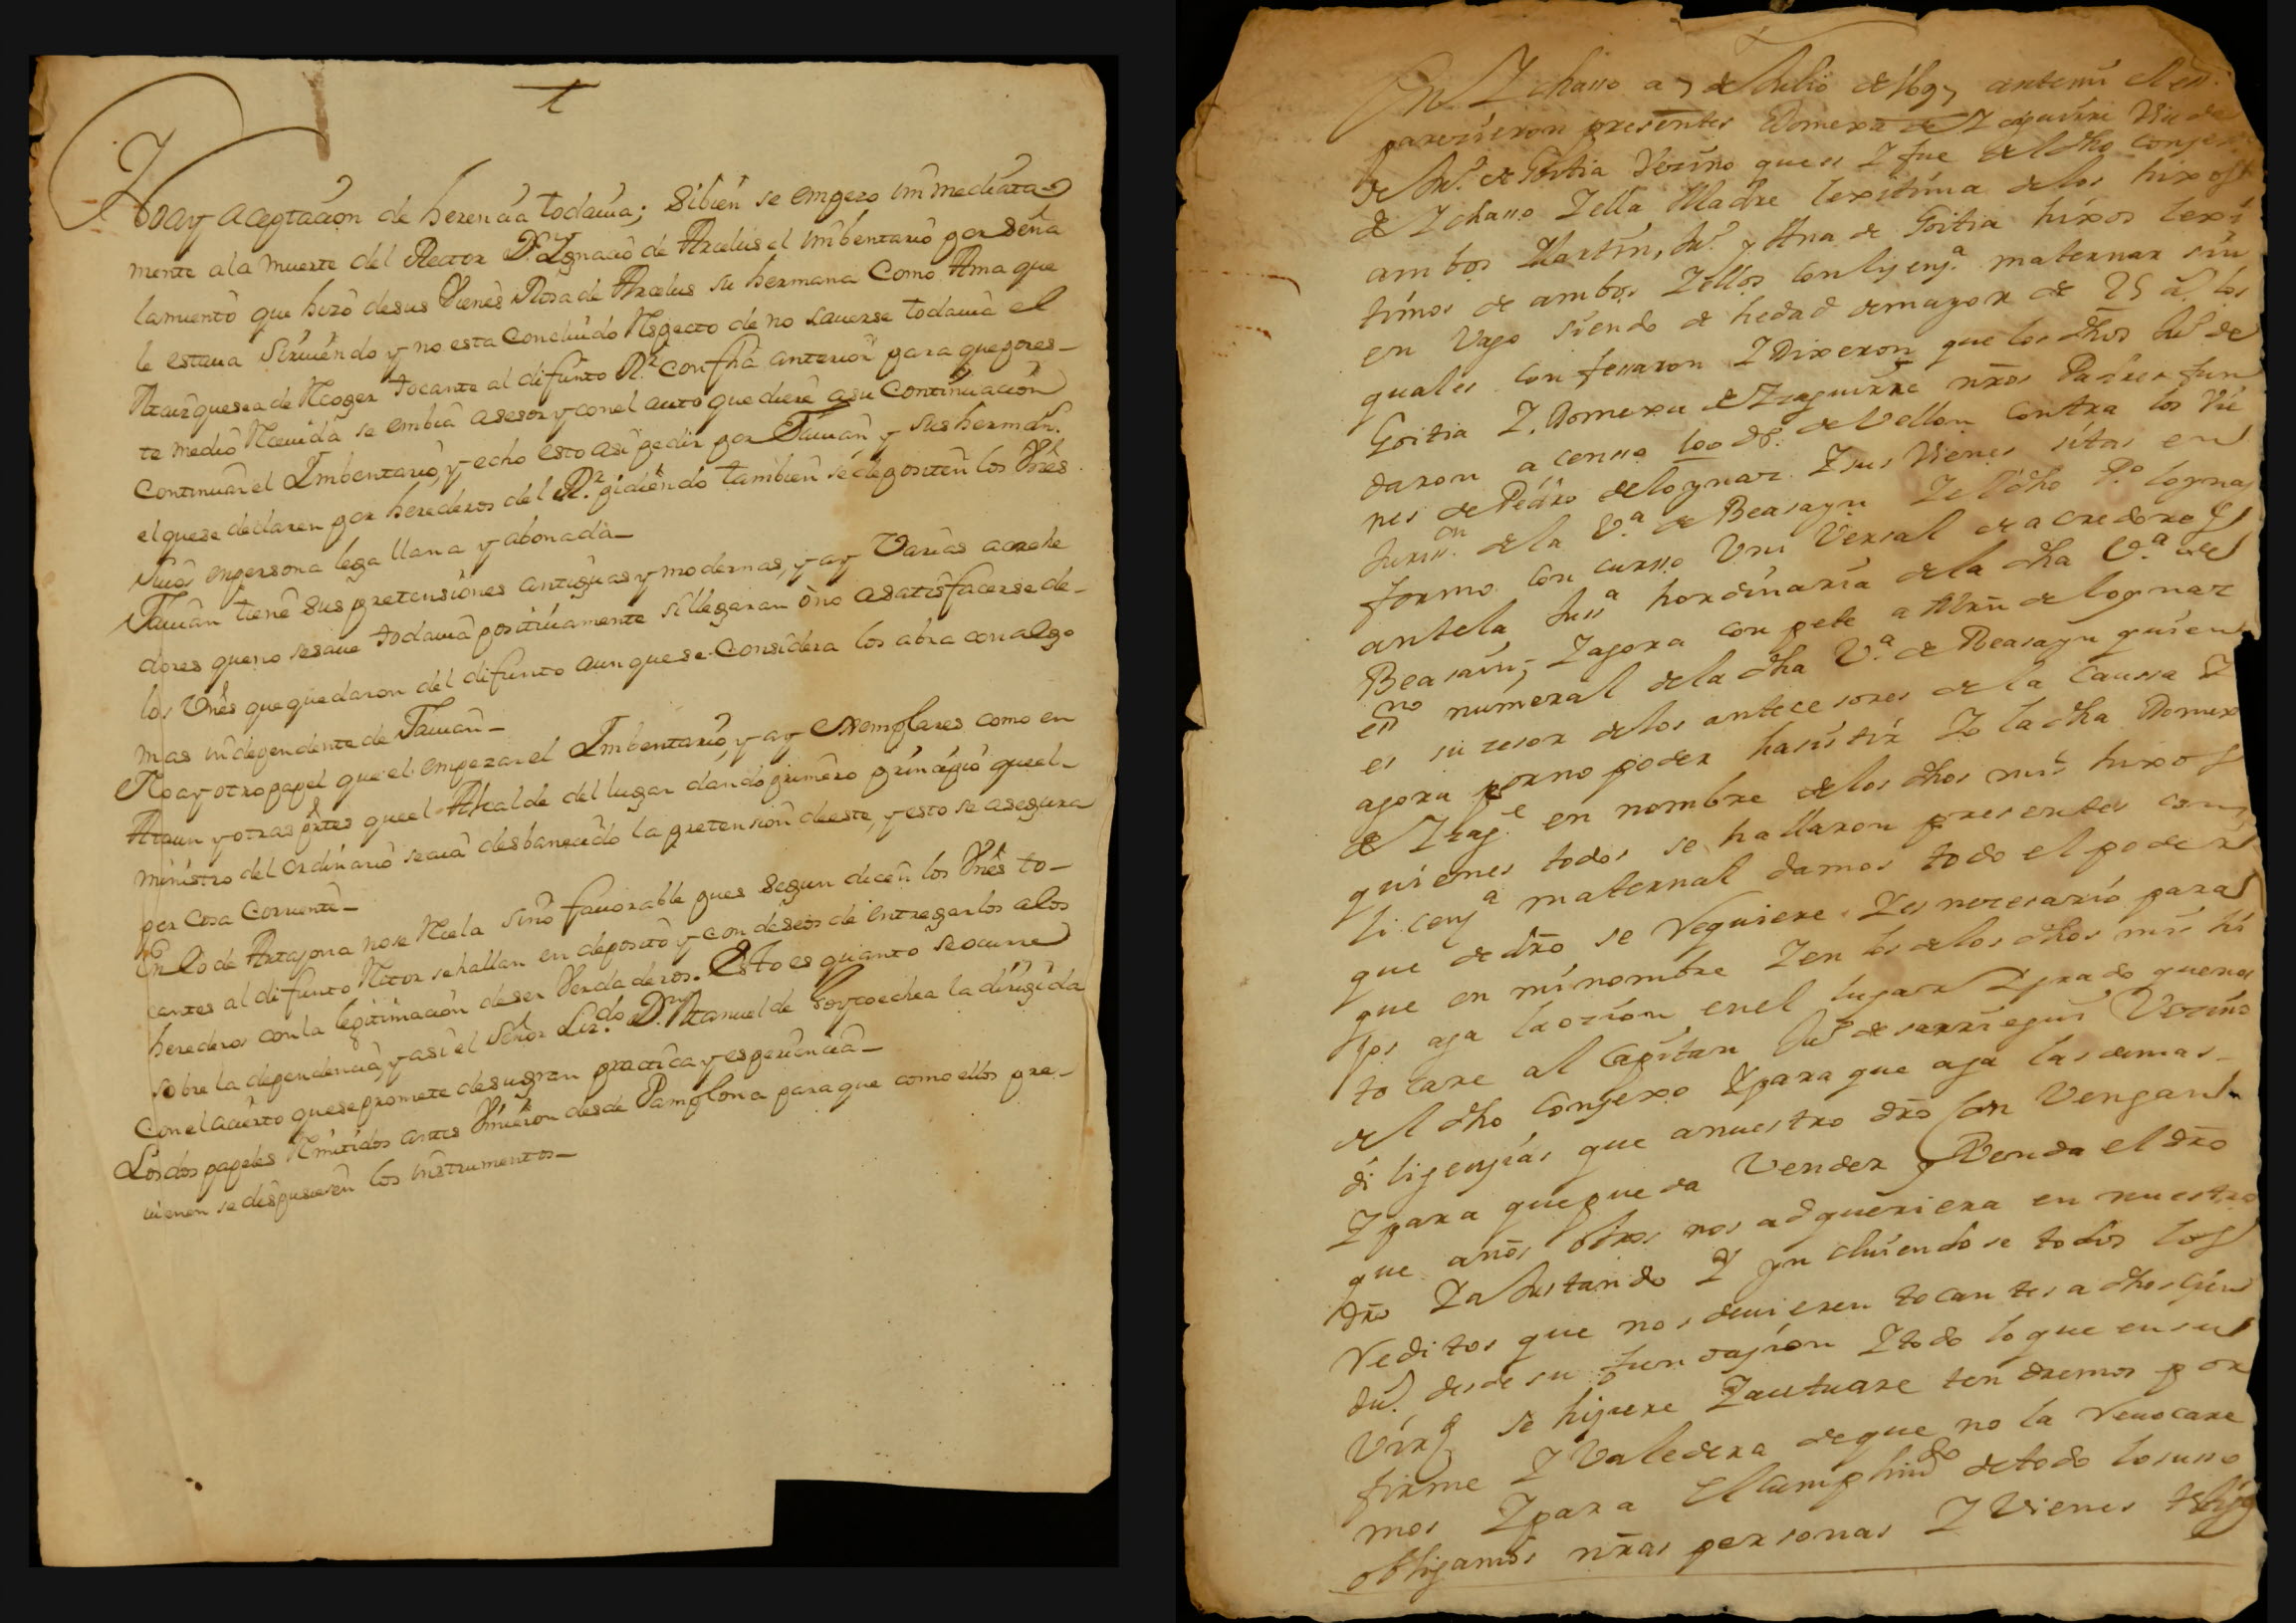 Noay aceptacion de herencia todauia; sibien se empezo immediata-
mente ala muerte del Rector Dn. Ignacio de Arcelus el imbentario por seña
lamiento que hizo desus Vienes Rosa de Arcelus su hermana como Ama que
le estaua siruiendo y no esta concluido Respecto de no sauerse todauia el
de Recoger tocante al difunto Rr. con fha anterior para quepores-
te medio Reciuida se embia asesor y conel auto que diere asu continuacion
continuar el Imbentario, y echo esto asi pedir por Juuan y sus herman.
el quese declaren por herederos del Rr. pidiendo tambien se depositen los Vnes
suios enpersona lega llana y abonada-
Juuan tiene sus pretensiones antiguas y modernas, y ay Varias acrehe
dores queno sesaue todauia positiuamente sillegaran òno asatisfacerse de-
los Vnes que quedaron del difunto aunquese considera los abra con algo
mas independente de Juuan-
Noay otro papel que el empezar el Imbentario, y ay exemplares como en
Ataun y otras prtes queel Alcalde del lugar dando primero principio queel-
ministro del ordinario seaia desbanecido la pretension deeste, y esto se asegura
por cosa corriente-
En lo de Artajona nose Recela sino fauorable pues segun dicen los Vnes to-
cantes al difunto Retor sehallan en deposito y con deseos de entregarlos alos
herederos conla legitimacion deser Verdaderos. Esto es quanto seocurre
sobre la dependencia, y asi el Señor Lizdo. Dn. Manuel de Goycoechea la dirigida
Con el acierto quesepromete desugran practica y esperiencia-
Los dos papeles Remitidos antes Vinieron desde Pamplona paraque como ellos pre-
uienen se dispusiesen los instrumentos-
En Ichasso a 7 de Julio de 1697 antemi el essno.
parecieron presentes Domexa de Izaguirre Viuda
de Juº. de Goitia Vecino que es I fue del dho conzejo
de Ichasso I ella Madre lexitima delos hixos de
ambos Martin, Juº. y Ana de Goitia hixos lexi
timos de ambos I ellos con liyenja. maternar sin
en Vago siendo de hedad demayor de 25 aº. los
quales confesaron I Dixeron que los dhos Juº de
Goitia I. Domexa de Izaguirre nros Padres fun
daron á censso 100 ds. de Vellon contra los Vie
nes de Pedro de lognaz I sus Vienes sitos en
Jurisson. dela Vª. de Beasayn I el dho Pº. lognaz
formo con cursso Vniversal de acredores
antela Jussª hordinaria dela dha Vª. de
Beasain, I agora con pete a Mrn de lognaz
essno numeral dela dha Vª. de Beasayn quien
es sucesor delos antecesores de la Caussa I
agora por no poder hasistir Io la dha Domexa
de Izage. en nombre delos dhos mis hixos
quienes todos se hallaron presentes con
licenjª maternal damos todo el poder
que de dro se Requiere I es necesario para
que en mi nombre I en los delos dhos mis hi
jos aja la ozion enel lugar I grado quenos
tocare al Capitan Juº de sarriegui Vecino
del dho Conzexo I para que aja las demas
diligenjias que anuestro dro con Vengan
I para que pueda Vender y Venda el dro
que anos otros nos adqueriera en nuestro
dro I a Justando I yn cluiendo se todos los
Reditos que nos deuieren tocantes a dhos cien
dus. desde su fundajion I todo lo que en su
Virtd se hijiere I autuare tendremos por
firme I Valedera deque no la Reuocare
mos I para el cumplimdo detodo losusso
obligamos nras personas I Vienes